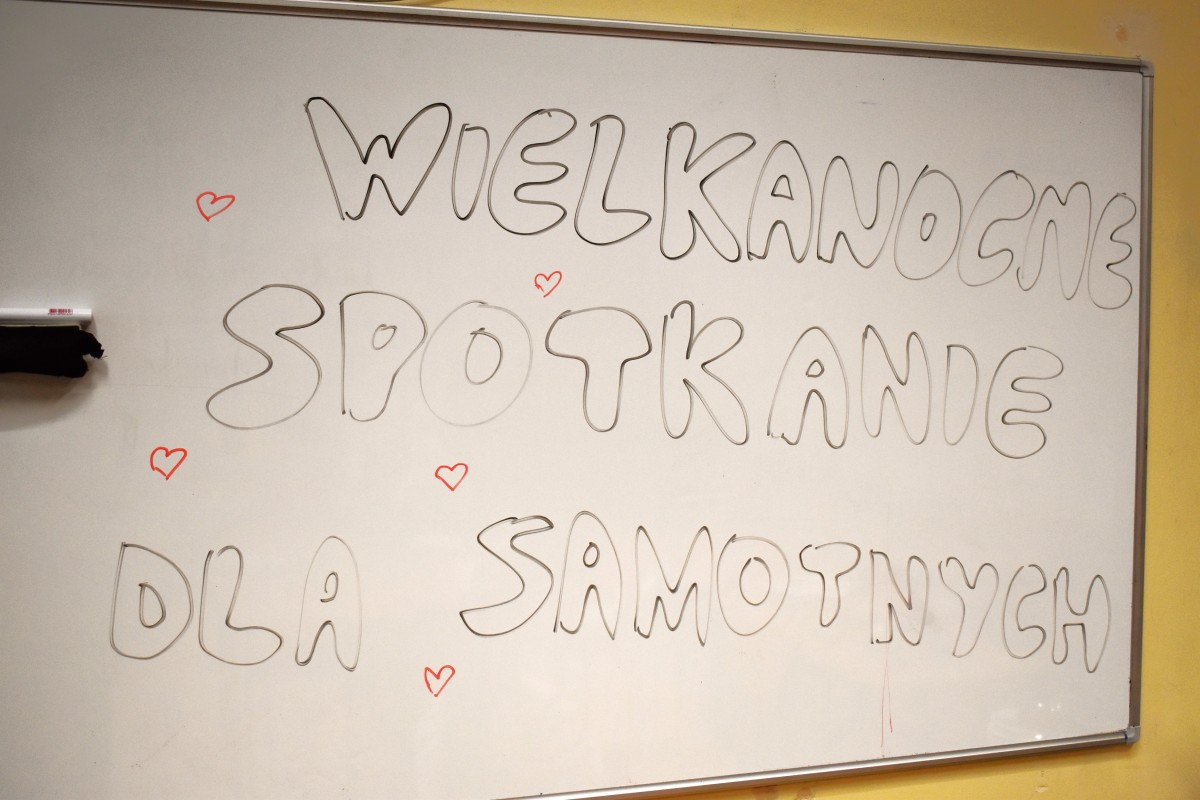 WIELKANOCNE
SPOTKANIE
DLA SAMOTNYCH